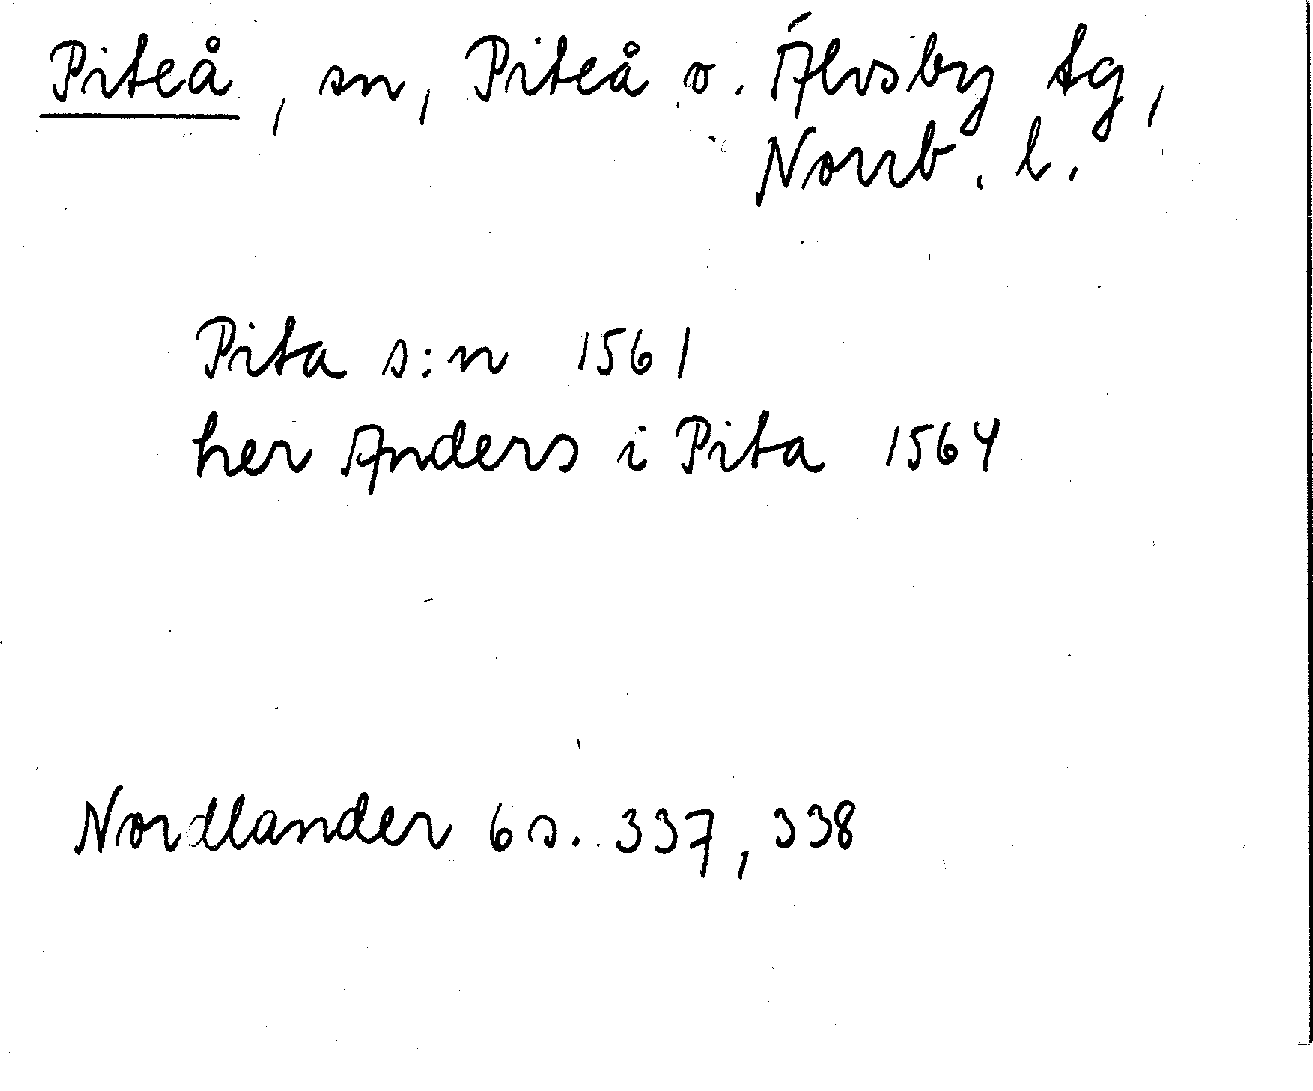 Piteå, sn, Piteå o. Älvsby tg,
Norrb. l.
Pita s:n 1561
her Anders i Pita 1564
Nordlander 6 s. 337, 338